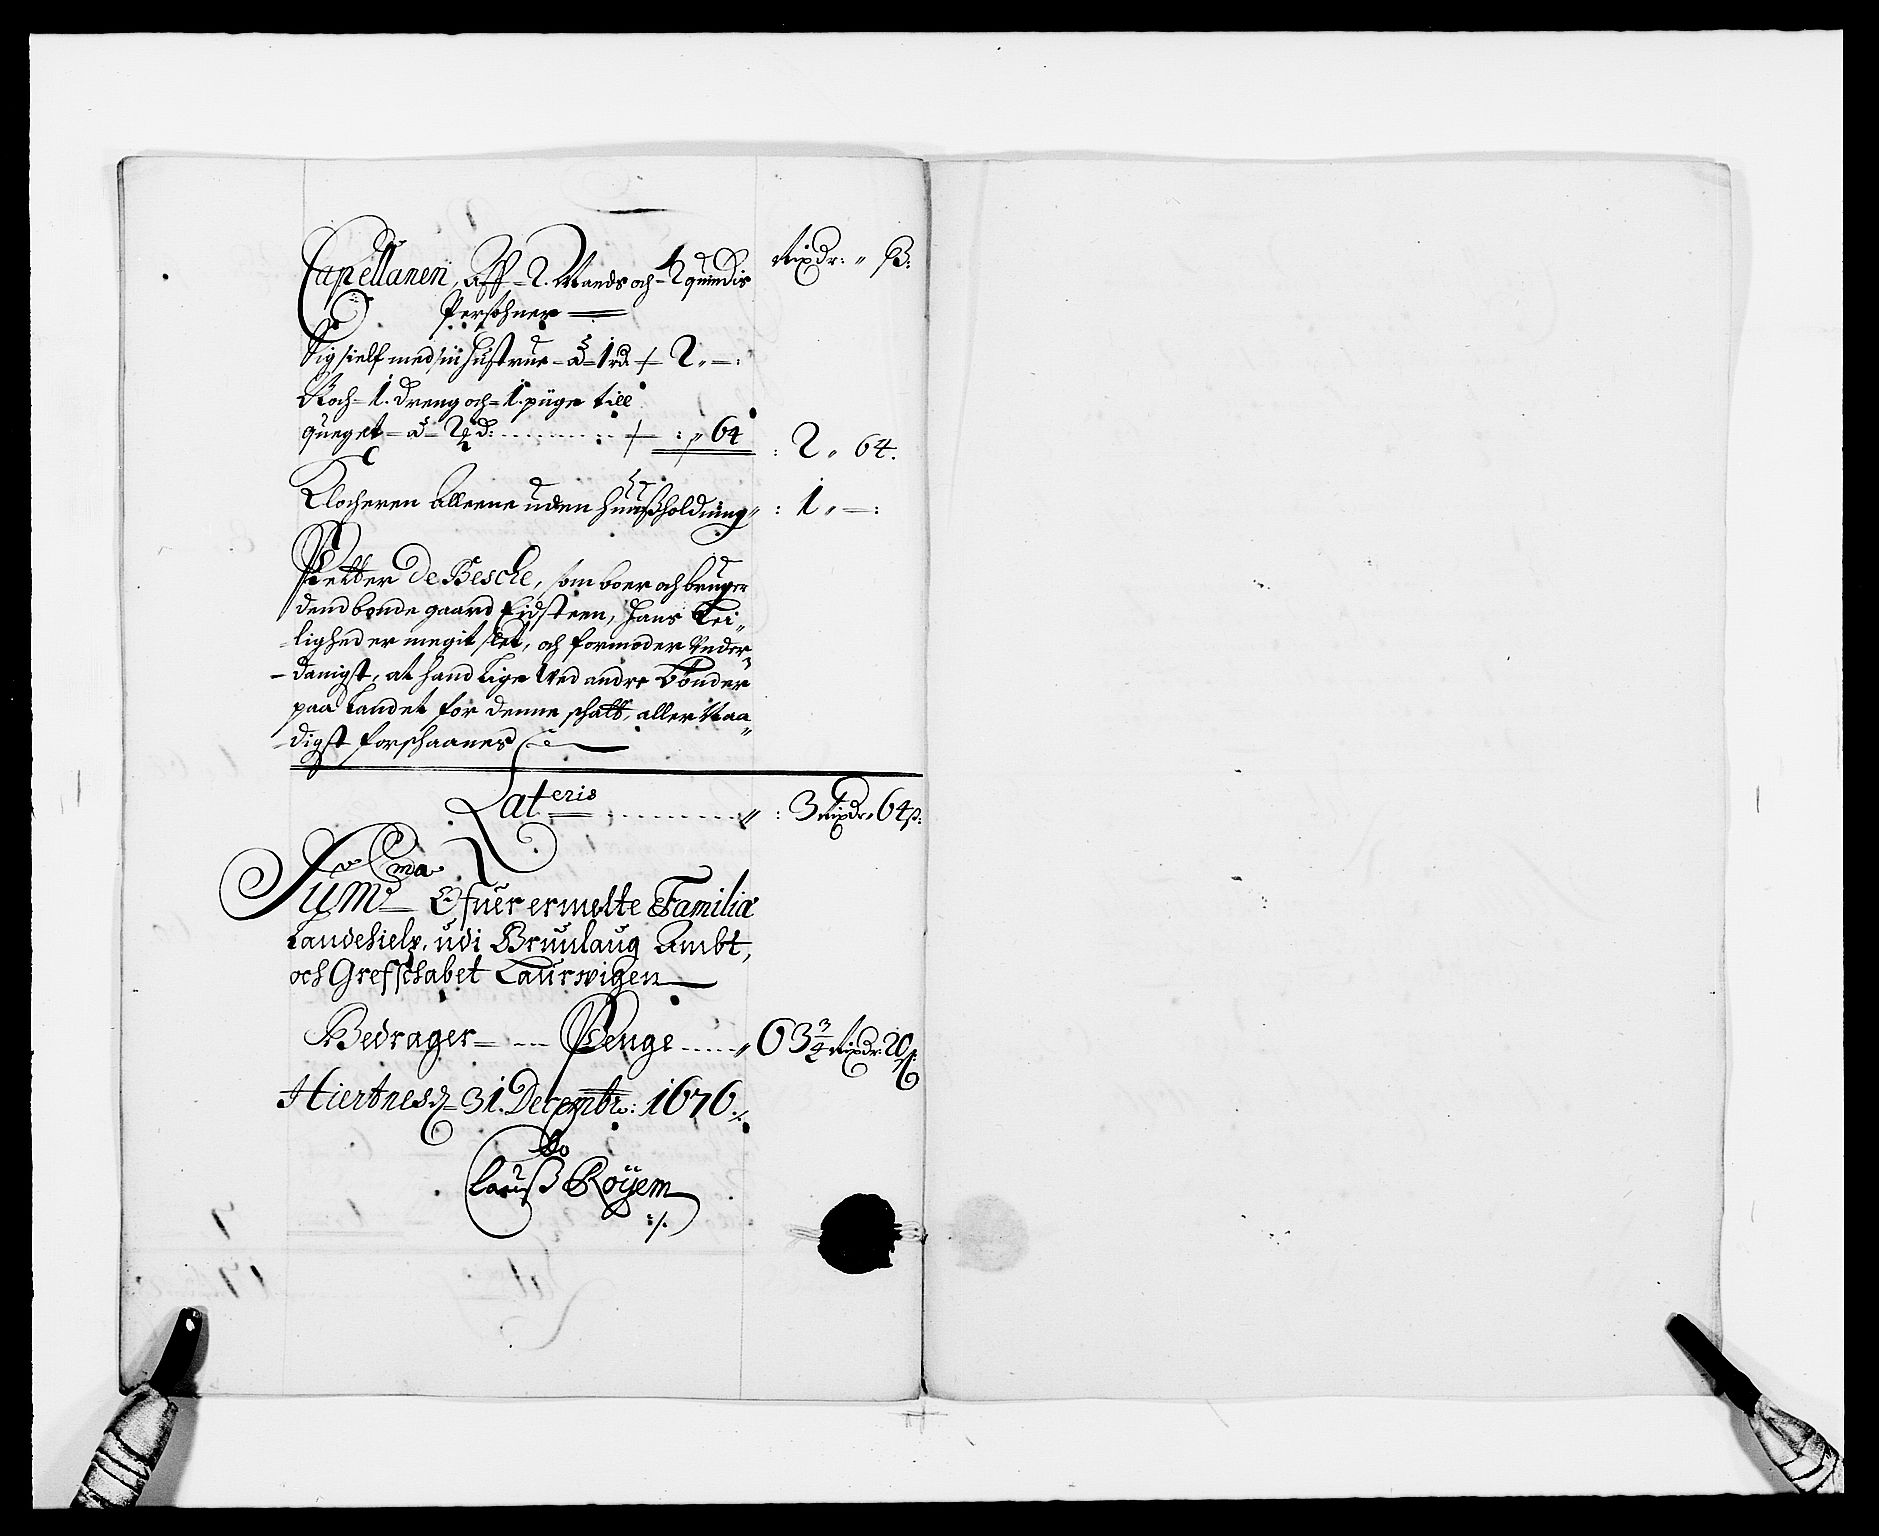 Rixdr: „ ß:
Capellanen, aff - 2. Mands och - 2 quindis
Persohner
Sig sielf med sin hustrue - a - 1 rd + 2 „ — :
Noch - 1. dreng och - 1. pige till
queget - a - ½ d: ......... + : „ 64 : 2 „ 64.
Klocheren alleene uden huusholdning „ : 1 „ — :
Petter De Besche, som boer och bruger
dend bonde gaard Eidsteen, hans Lei„
lighed er megit slet, och formoder Under„
danigst, at hand Lige Ved andre Bønder
paa Landet for denne schatt, aller Naa„
digst forschaanes
Lateris ......... „ : 3 Rixdr „ 64 ß:
Summa Ofuer ermelte Familiæ
Landehielp, udi Brunlaug Ambt,
och Grefschabet Laurwigen
Bedrager — Penge ..... „ 63 3/4 Rixdr: 20 ß:
Hiertnes - 31. Decembr: 1676 ./.
Clauß Röyem
:/.